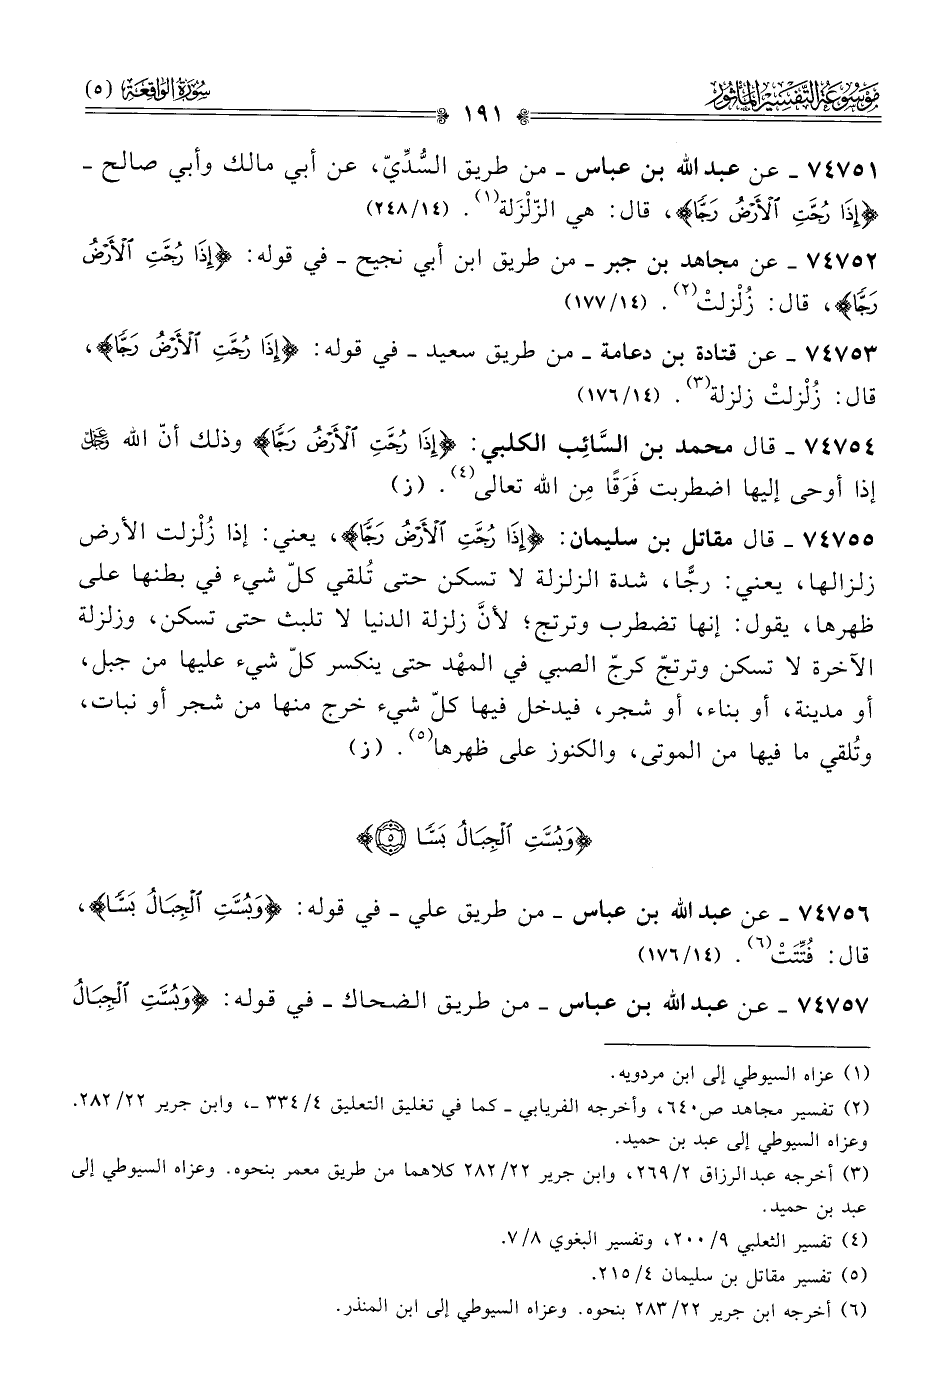 مَوْسُوعَةُ التَّفْسِيرِ المَأْثُور
سُورَةُ الوَاقِعَة (٥)
١٩١
٧٤٧٥١ ـ عن عبد الله بن عباس ـ من طريق السُّدِّيّ، عن أبي مالك وأبي صالح ـ
﴿إِذَا رُجَّتِ ٱلْأَرْضُ رَجًّا﴾، قال: هي الزّلْزَلة(١). (٢٤٨/١٤)
٧٤٧٥٢ ـ عن مجاهد بن جبر ـ من طريق ابن أبي نجيح ـ في قوله: ﴿إِذَا رُجَّتِ ٱلْأَرْضُ
رَجًّا﴾، قال: زُلْزلتْ(٢). (١٧٧/١٤)
٧٤٧٥٣ ـ عن قتادة بن دعامة ـ من طريق سعيد ـ في قوله: ﴿إِذَا رُجَّتِ ٱلْأَرْضُ رَجًّا﴾،
قال: زُلْزلتْ زلزلة(٣). (١٧٦/١٤)
٧٤٧٥٤ ـ قال محمد بن السَّائِب الكلبي: ﴿إِذَا رُجَّتِ ٱلْأَرْضُ رَجًّا﴾ وذلك أنّ الله ﷿
إذا أوحى إليها اضطربت فَرَقًا مِن الله تعالى(٤). (ز)
٧٤٧٥٥ ـ قال مقاتل بن سليمان: ﴿إِذَا رُجَّتِ ٱلْأَرْضُ رَجًّا﴾، يعني: إذا زُلْزلت الأرض
زلزالها، يعني: رجًّا، شدة الزلزلة لا تسكن حتى تُلقي كلّ شيء في بطنها على
ظهرها، يقول: إنها تضطرب وترتج؛ لأنَّ زلزلة الدنيا لا تلبث حتى تسكن، وزلزلة
الآخرة لا تسكن وترتجّ كرجّ الصبي في المهْد حتى ينكسر كلّ شيء عليها من جبل،
أو مدينة، أو بناء، أو شجر، فيدخل فيها كلّ شيء خرج منها من شجر أو نبات،
وتُلقي ما فيها من الموتى، والكنوز على ظهرها(٥). (ز)
﴿وَبُسَّتِ ٱلْجِبَالُ بَسًّا ٥﴾
٧٤٧٥٦ ـ عن عبد الله بن عباس ـ من طريق علي ـ في قوله: ﴿وَبُسَّتِ ٱلْجِبَالُ بَسًّا﴾،
قال: فُتِّتَتْ(٦). (١٧٦/١٤)
٧٤٧٥٧ ـ عن عبد الله بن عباس ـ من طريق الضحاك ـ في قوله: ﴿وَبُسَّتِ ٱلْجِبَالُ
(١) عزاه السيوطي إلى ابن مردويه.
(٢) تفسير مجاهد ص٦٤٠، وأخرجه الفريابي ـ كما في تغليق التعليق ٣٣٤/٤ ـ، وابن جرير ٢٨٢/٢٢.
وعزاه السيوطي إلى عبد بن حميد.
(٣) أخرجه عبد الرزاق ٢٦٩/٢، وابن جرير ٢٨٢/٢٢ كلاهما من طريق معمر بنحوه. وعزاه السيوطي إلى
عبد بن حميد.
(٤) تفسير الثعلبي ٢٠٠/٩، وتفسير البغوي ٧/٨.
(٥) تفسير مقاتل بن سليمان ٢١٥/٤.
(٦) أخرجه ابن جرير ٢٨٣/٢٢ بنحوه. وعزاه السيوطي إلى ابن المنذر.